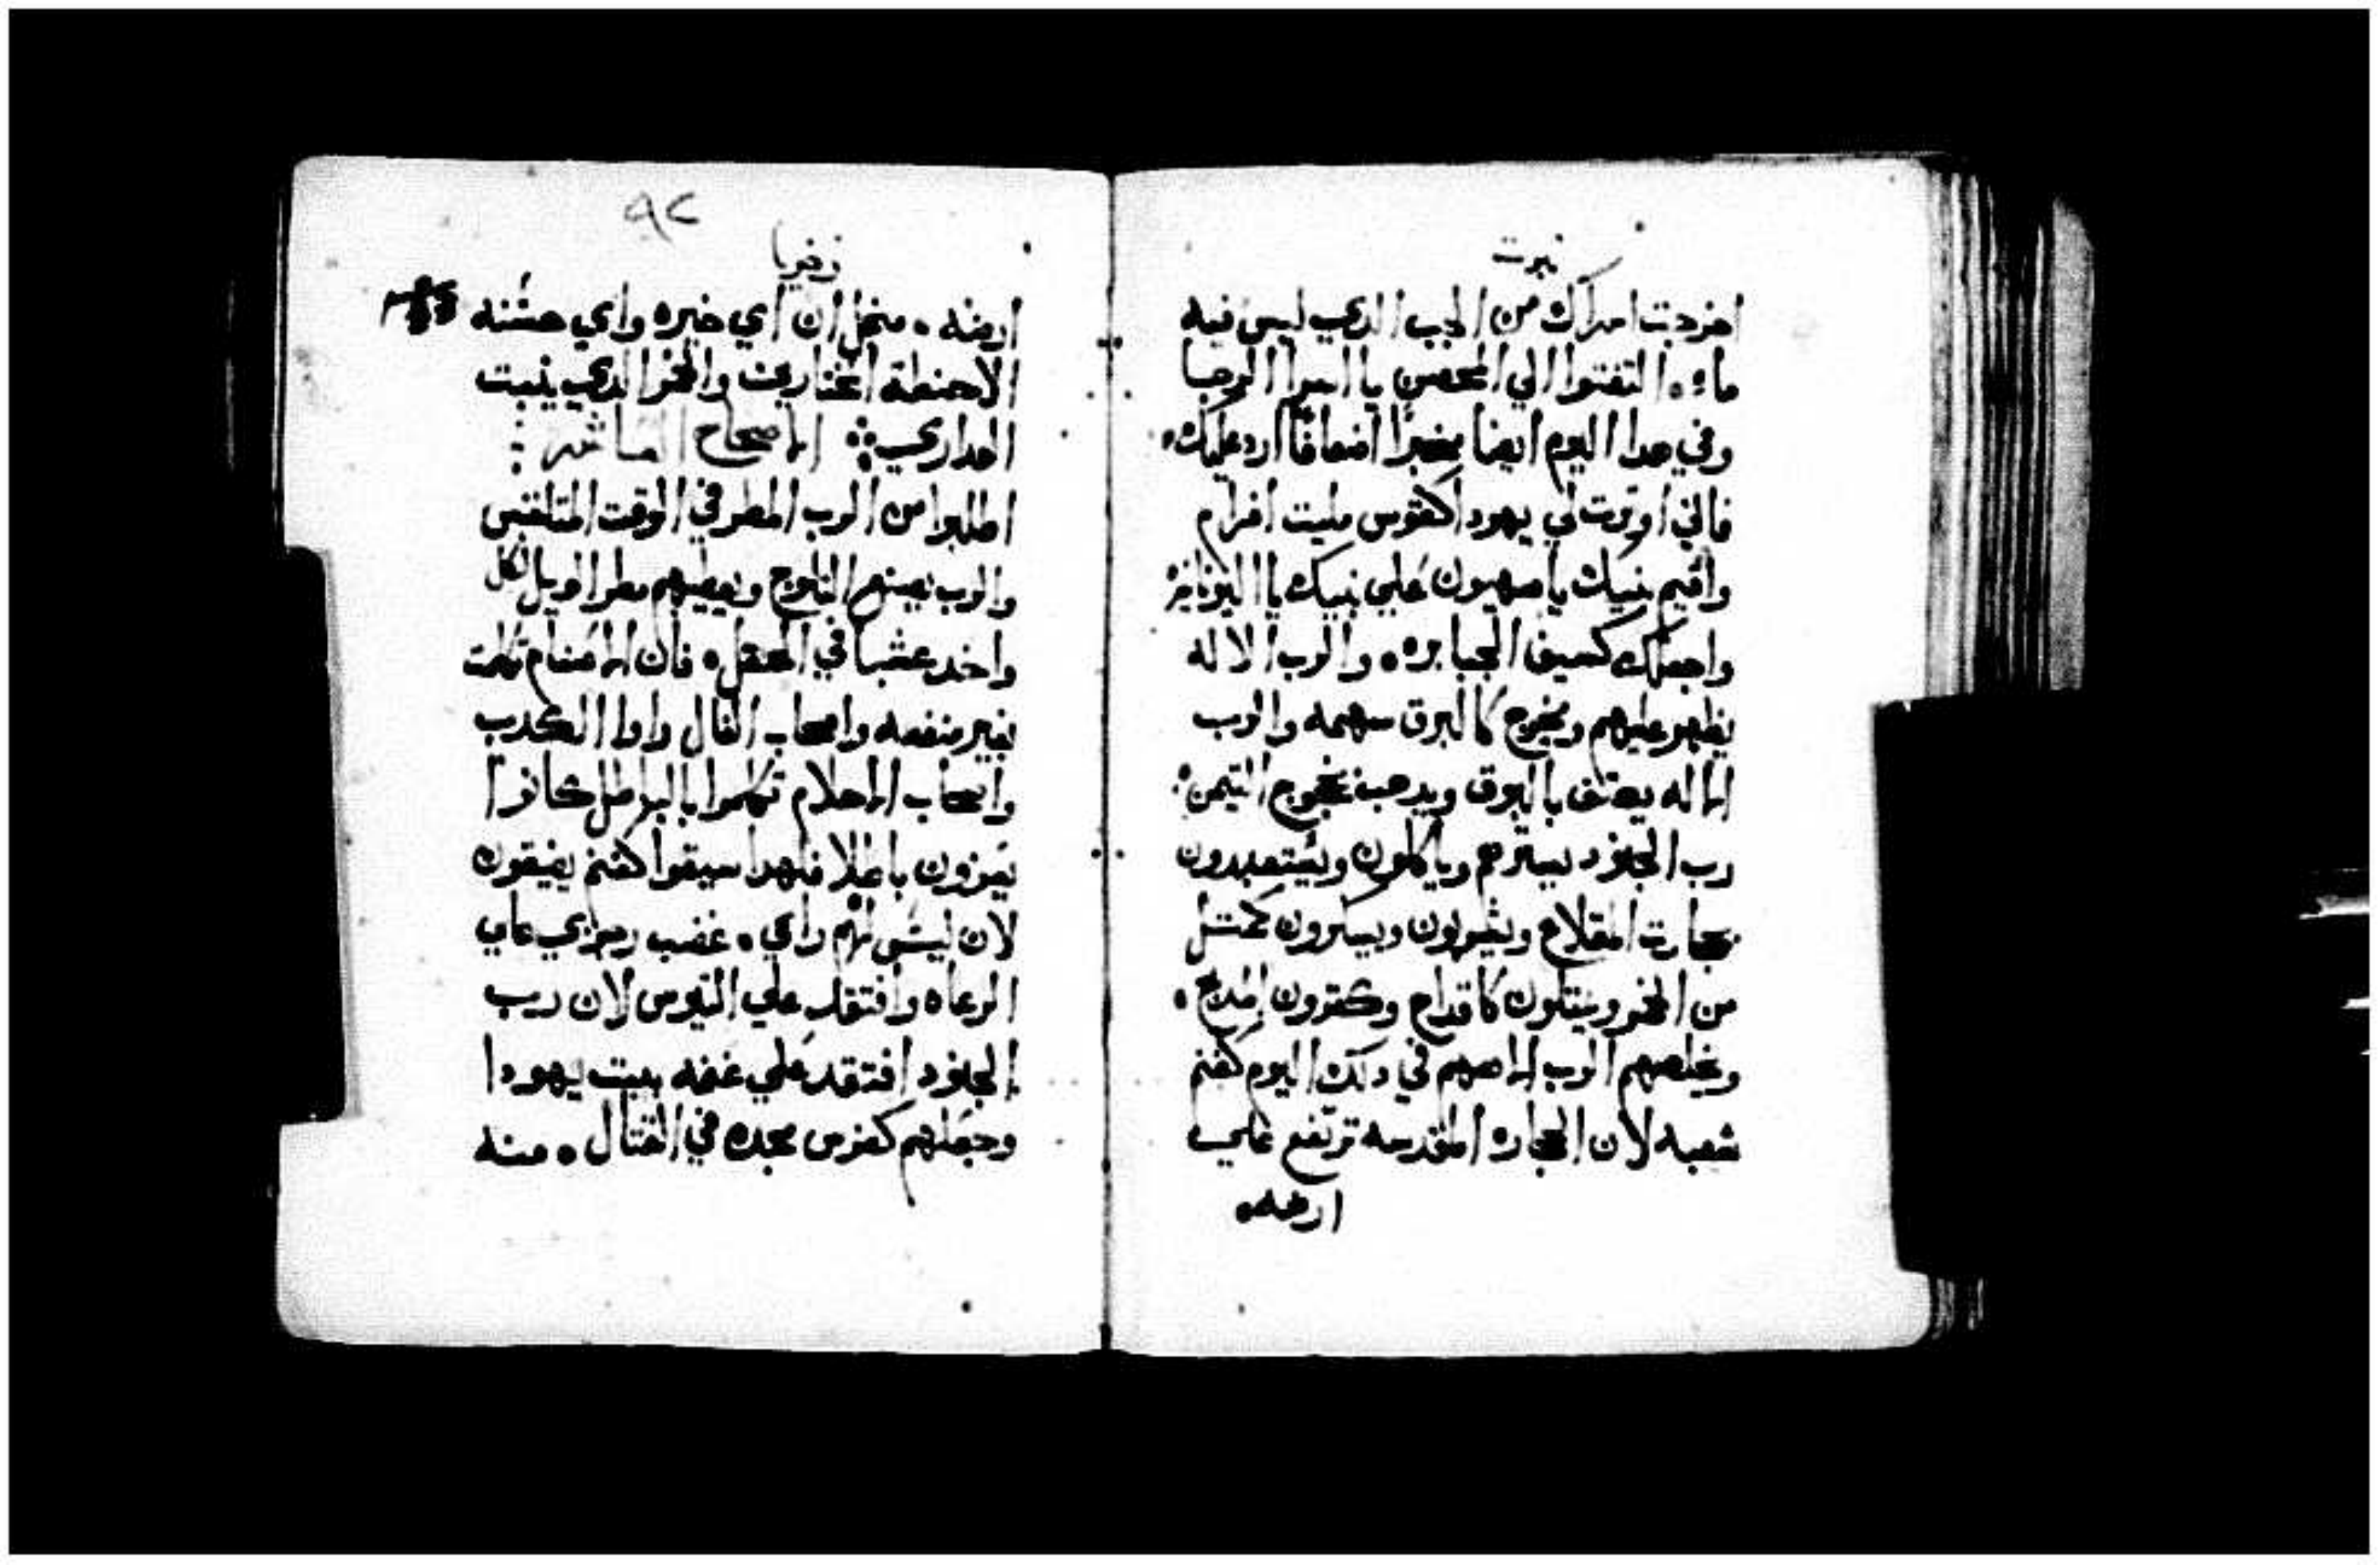 نبوت
اخرجت اسراك من الجب الدي ليس فيه
ماء، التفتوا الي الحصن يا اسرا الرجا
وفي هدا اليوم ايضا مخبرا اضعافا ارد عليك،
فاني اوترت لي يهودا كقوس مليت افرام
واقيم بنيك يا صهيون علي بنيك يا اليونانيه
واجعلك كسيف الجبابره، والرب الاله
يظهر عليهم ويخرج كالبرق سهمه والرب
الاله يصوت بالبوق ويدهب بخروج التيمن؛
رب الجنود يسترهم وياكلون ويستعبدون
بحجارت المقلاع ويشربون ويسكرون كمتل
من الخمر ويمتلون كاقداح وكقرون المدبح،
ويخلصهم الرب الاههم في دلك اليوم كغنم
شعبه لان الحجاره المقدسه ترتفع علي
ارضه،
٩٢
زخريا
ارضه، من اجل ان اي خيره واي حسنه
الا حنطة المختارين والخمر الدي ينبت
العداري؛ الاصحاح العاشر :
اطلبوا من الرب المطر في الوقت المتلقس
والرب يصنع التلوج ويعطيهم مطر الوبل لكل
واحد عشبا في الحقل، فان الاصنام تكلمت
بغير منفعه واصحاب الفال راوا الكدب
واصحاب الاحلام تكلموا بالباطل كانوا
يعزون باطلا فلهدا سيقوا كغنم يضيقون
لان ليس لهم راعي، غضب رجزي علي
الرعاه وافتقد علي التيوس لان رب
الجنود افتقد علي غنمه بيت يهودا
وجعلهم كفرس مجده في القتال، منه